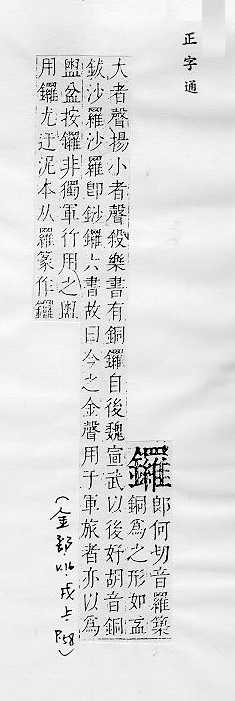 正字通
鑼
郎何切音羅築
銅爲之形如盂
大者聲揚小者聲殺樂書有銅鑼自後魏宣武以後好胡音銅
鈸沙羅沙羅卽鈔鑼六書故曰今之金聲用于軍旅者亦以爲
盥盆按鑼非獨軍行用之盥
用鑼尤迂泥本从羅篆作
(金部 V.16, 戌上, P.58)